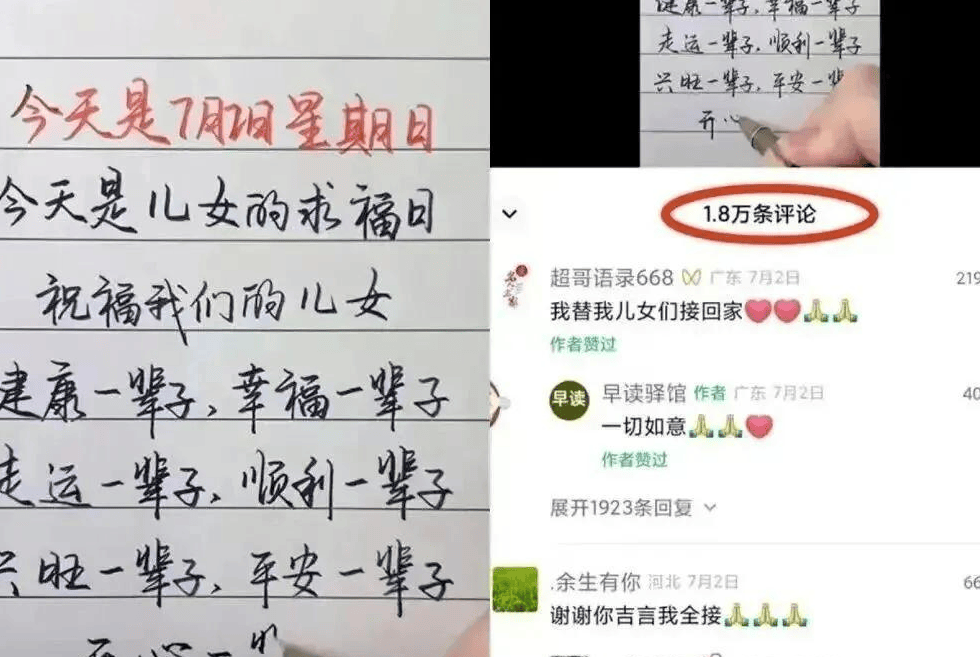 今天是7月2日星期日
今天是儿女的求福日
祝福我们的儿女
健康一辈子,幸福一辈子
走运一辈子,顺利一辈子
兴旺一辈子,平安一辈子
开心一
健康一辈子,幸福一辈子
走运一辈子,顺利一辈子
兴旺一辈子,平安一辈
开心
1.8万条评论
超哥语录668 广东 7月2日
219
我替我儿女们接回家❤️❤️🙏🙏
作者赞过
早读
早读驿馆 作者 广东 7月2日
40
一切如意🙏🙏❤️
作者赞过
展开1923条回复
.余生有你 河北 7月2日
66
谢谢你吉言我全接🙏🙏🙏